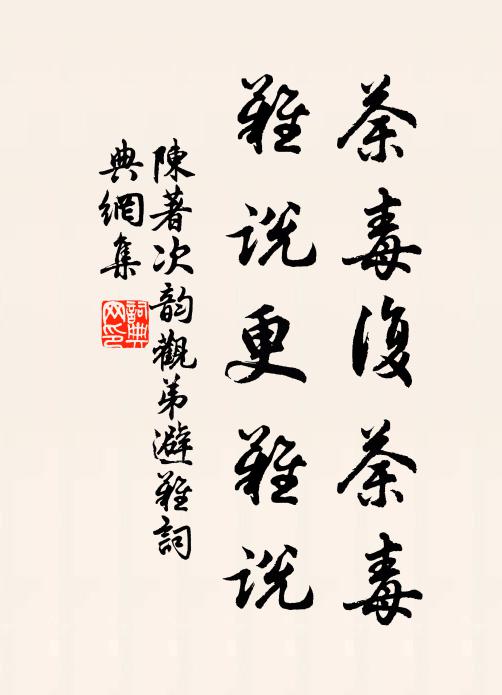 荼毒復荼毒
難説更難説
陳著次韵觀弟避難詞
典網集
詞典
网印